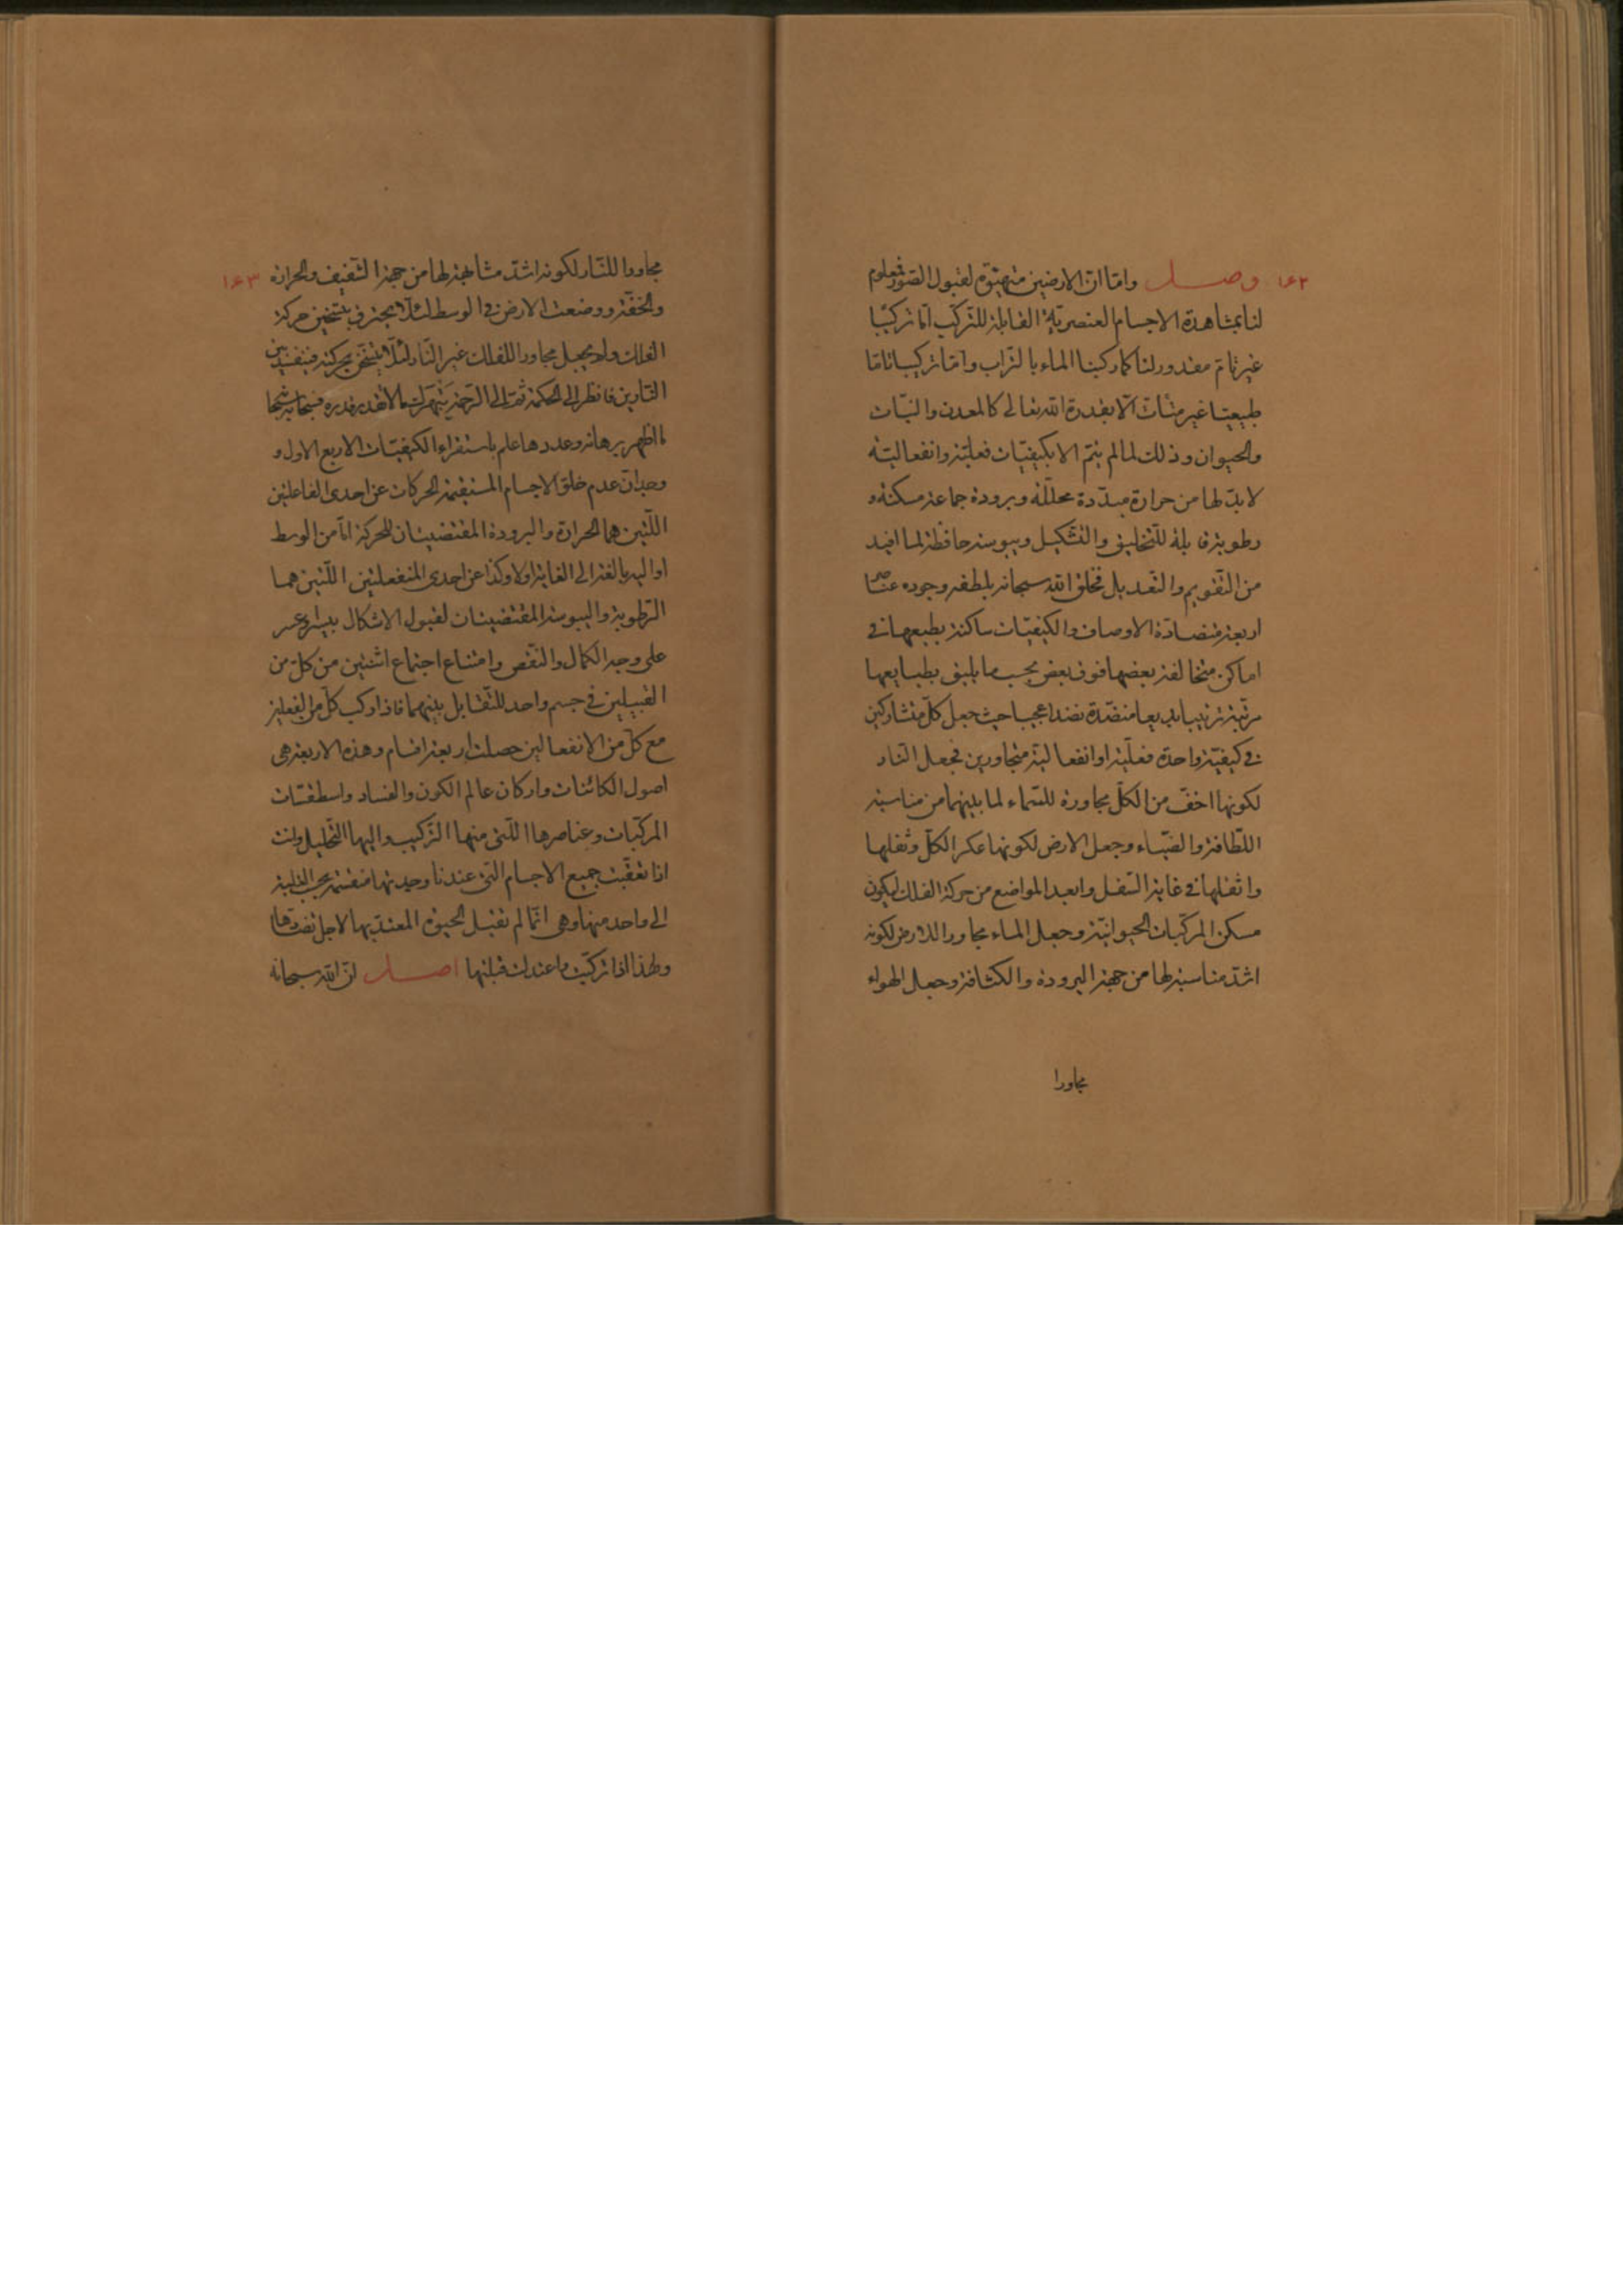 ١٦٢ وصل واما ان الارضين متهيئة لقبول الصور فمعلوم
لنا بمشاهدة الاجسام العنصرية القابلة للتركب اما تركيبا
غير تام مقدور لنا كما ركبنا الماء بالتراب واما تركيبا تاما
طبيعيا غير متأت الا بقدرة الله تعالى كالمعدن والنبات
والحيوان وذلك لما لم يتم الا بكيفيات فعلية وانفعالية
لا بد لها من حرارة مبددة محللة وبرودة جماعة مسكنة و
رطوبة قابلة للتخليق والتشكيل ويبوسة حافظة لما افيد
من التقويم والتعديل فخلق الله سبحانه بلطفه وجوده عناصر
اربعة متضادة الاوصاف والكيفيات ساكنة بطبعها في
اماكن متخالفة بعضها فوق بعض بحسب ما يليق بطبايعها
مرتبة ترتيبا بديعا منضدة نضدا عجيبا حيث جعل كل متشاركين
في كيفية واحدة فعلية او انفعالية متجاورين فجعل النار
لكونها اخف من الكل مجاورة للسماء لما بينهما من مناسبة
اللطافة والضياء وجعل الارض لكونها عكر الكل وثفلها
واثقلها في غاية السفل وابعد المواضع من حركة الفلك ليكون
مسكن المركبات الحيوانية وجعل الماء مجاورا للارض لكونه
اشد مناسبة لها من جهة البرودة والكثافة وجعل الهواء
مجاورا
١٦٣ مجاورا للنار لكونه اشد مشابهة لها من جهة التخفيف والحرارة
والخفة ووضعت الارض في الوسط لئلا يحترق بتسخين حركة
الفلك ولم يجعل مجاورا للفلك غير النار لئلا يتسخن بحركته فيفسد بين
النارين فانظر الى الحكمة ثم الى الرحمة
ما اظهر برهانه وعددها علم باستقراء الكيفيات الاربع الاول و
وجدان عدم خلق الاجسام المستقيمة الحركات عن احدى الفاعلتين
اللتين هما الحرارة والبرودة المقتضيتان للحركة اما من الوسط
او اليه بالغة الى الغاية او لا وكذا عن احدى المنفعلتين اللتين هما
الرطوبة واليبوسة المقتضيتان لقبول الاشكال بيسر وعسر
على وجه الكمال والنقص وامتناع اجتماع اثنتين من كل من
القبيلين في جسم واحد للتقابل بينهما فاذا ركب كل من الفعليين
مع كل من الانفعاليين حصلت اربعة اقسام وهذه الاربعة هي
اصول الكائنات واركان عالم الكون والفساد واسطقسات
المركبات وعناصرها اللتي منها التركيب واليها التحليل وانت
اذا تعقبت جميع الاجسام التي عندنا وجدتها منقسمة بحسب الغلبة
الى واحد منها وهي انما لم تقبل الحيوة المعتد بها لاجل تضادها
ولهذا اذا تركبت واعتدلت قبلتها اصل ان الله سبحانه